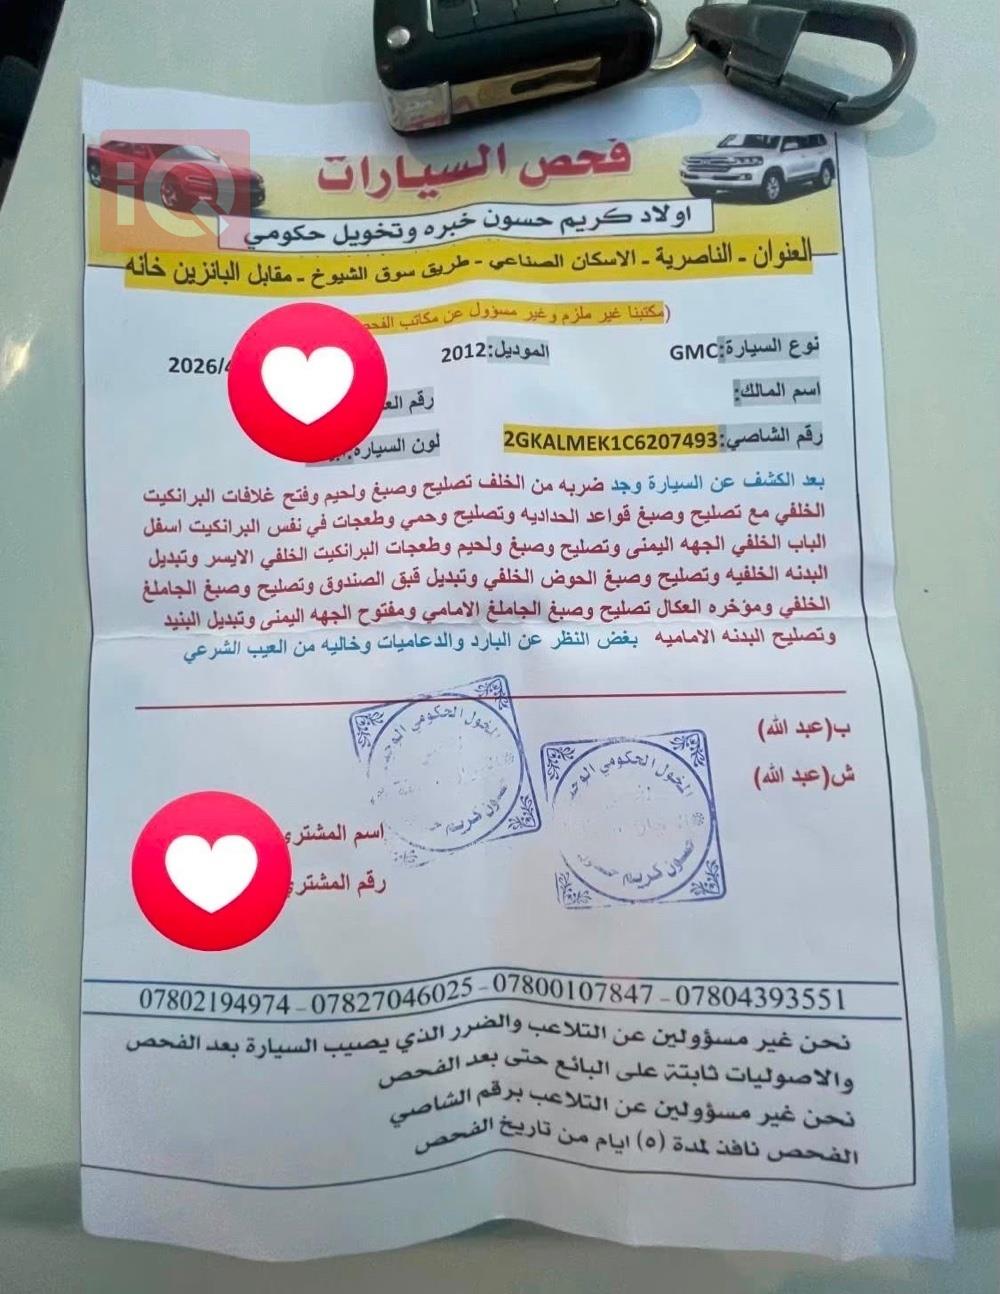 iQ
فحص السيارات
اولاد كريم حسون خبره وتخويل حكومي
العنوان - الناصرية - الاسكان الصناعي - طريق سوق الشيوخ - مقابل البانزين خانه
(مكتبنا غير ملزم وغير مسؤول عن مكاتب الفحص
نوع السيارة:GMC الموديل:2012 2026/4
اسم المالك: رقم
رقم الشاصي:2GKALMEK1C6207493 لون السيارة:
بعد الكشف عن السيارة وجد ضربه من الخلف تصليح وصبغ ولحيم وفتح غلافات البرانكيت
الخلفي مع تصليح وصبغ قواعد الحداديه وتصليح وحمي وطعجات في نفس البرانكيت اسفل
الباب الخلفي الجهه اليمنى وتصليح وصبغ ولحيم وطعجات البرانكيت الخلفي الايسر وتبديل
البدنه الخلفيه وتصليح وصبغ الحوض الخلفي وتبديل قبق الصندوق وتصليح وصبغ الجاملغ
الخلفي ومؤخره العكال تصليح وصبغ الجاملغ الامامي ومفتوح الجهه اليمنى وتبديل البنيد
وتصليح البدنه الاماميه بغض النظر عن البارد والدعاميات وخاليه من العيب الشرعي
ب(عبد الله)
ش(عبد الله)
المخول الحكومي الوحيد
حسون كريم
المخول الحكومي الوحيد
حسون كريم
اسم المشتري
رقم المشتري
07802194974 - 07827046025 - 07800107847 - 07804393551
نحن غير مسؤولين عن التلاعب والضرر الذي يصيب السيارة بعد الفحص
والاصوليات ثابتة على البائع حتى بعد الفحص
نحن غير مسؤولين عن التلاعب برقم الشاصي
الفحص نافذ لمدة (٥) ايام من تاريخ الفحص